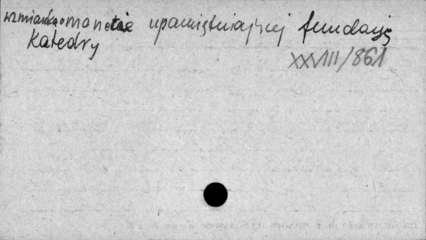 wzmianka o monecie upamiętniającej fundację
katedry
XXVIII/861